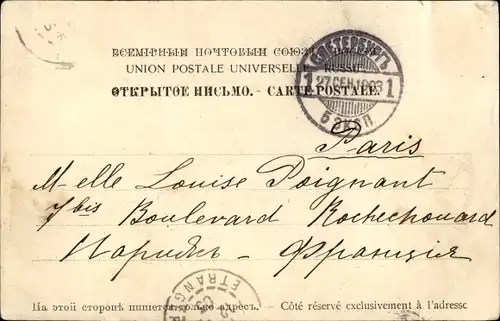 ВСЕМІРНЫЙ ПОЧТОВЫЙ СОЮЗЪ.
UNION POSTALE UNIVERSELLE. RUSSIE
ОТКРЫТОЕ ПИСЬМО. - CARTE POSTALE.
С.ПЕТЕРБУРГЪ
1 27 СЕН 1903 1
5 ЭКСП
Paris
M-elle Louise Poignant
7 bis Boulevard Rochechouard
Парижъ - Франція
ETRANGER
На этой сторонѣ пишется только адресъ. - Côté réservé exclusivement à l'adresse